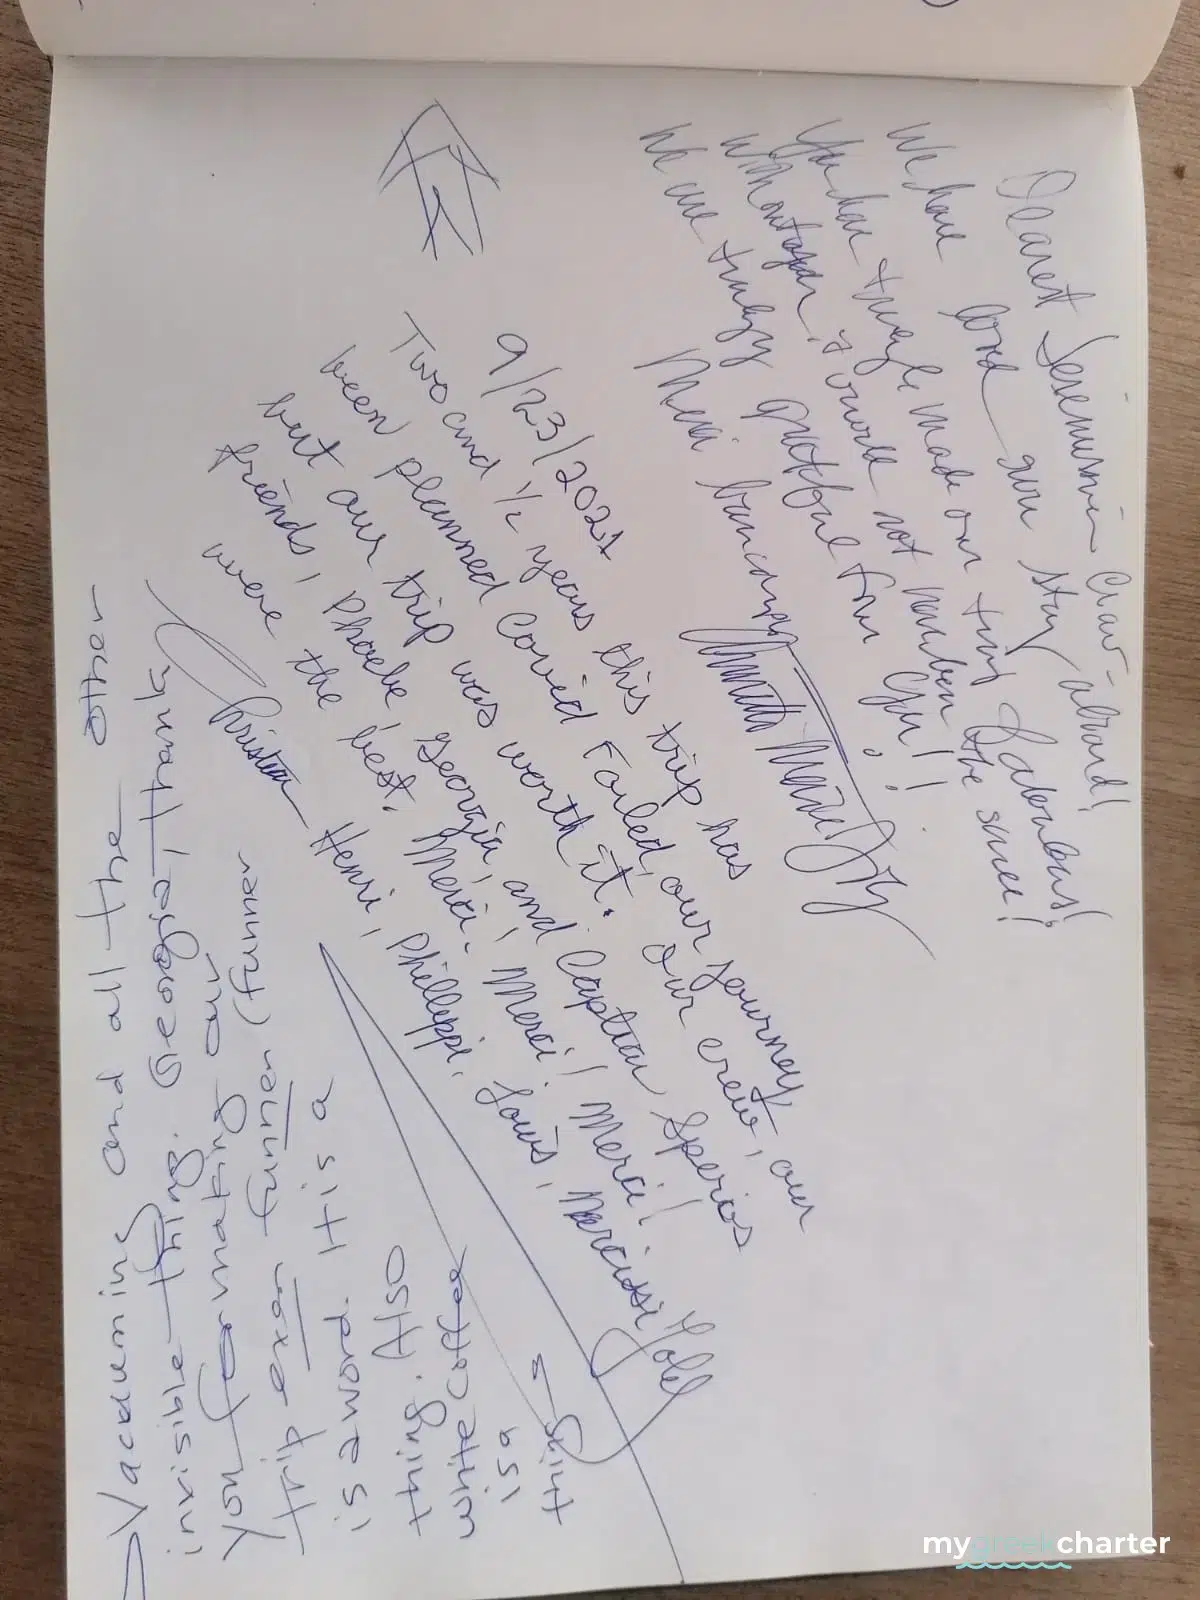 Dearest Crew -
We have loved our stay aboard!
You have truly made our trip fabulous!
Without you, it would not have been the same!
We are truly grateful for you!!
Merci
9/23/2021
Two and 1/2 years this trip has
been planned Covid Failed, our journey,
but our trip was worth it. Our crew, our
friends, Phoebe, Georgia, and Captian Sperios
were the best. Merci, Merci! Merci!
Christian Henri, Phillippi, Louis, Narcissi
Vacuuming and all the other
invisible thing. Georgia, thank
you for making our
trip exen funner (funner
is a word. It is a
thing. Also
white coffee
is a
thing
mygreekcharter